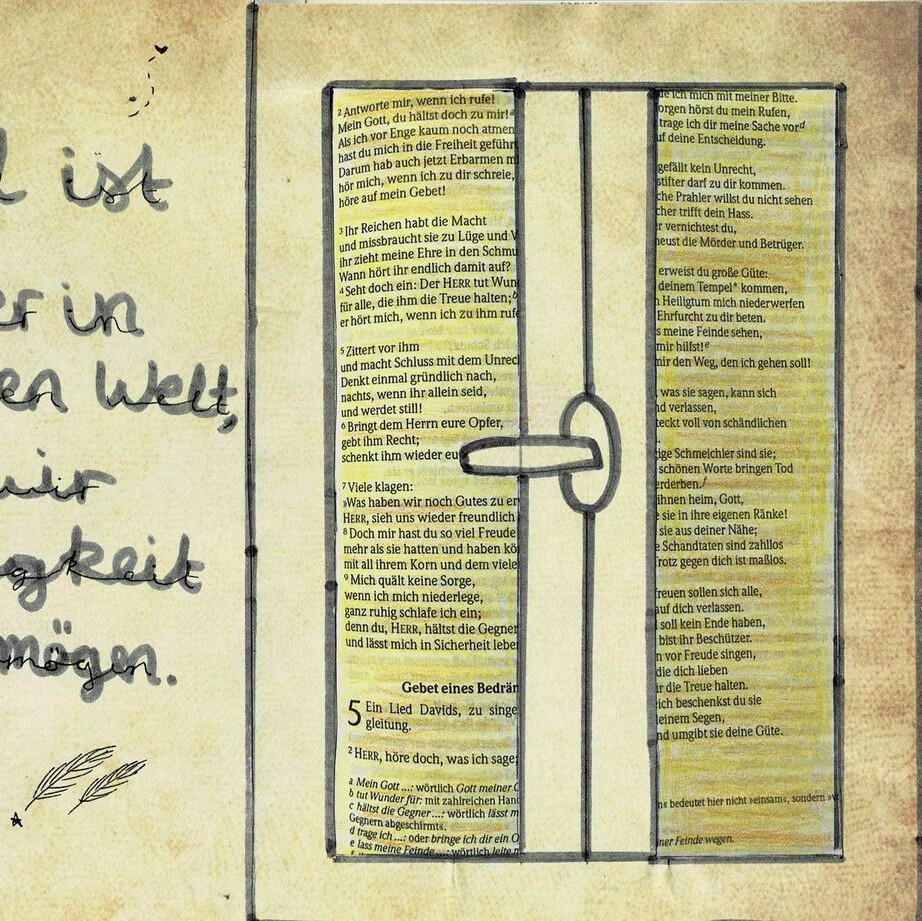 ist
er in
en Welt,
mir
gkeit
mögen.
2 Antworte mir, wenn ich rufe!
Mein Gott, du hältst doch zu mir!a
Als ich vor Enge kaum noch atmen
hast du mich in die Freiheit geführ
Darum hab auch jetzt Erbarmen m
hör mich, wenn ich zu dir schreie,
höre auf mein Gebet!
3 Ihr Reichen habt die Macht
und missbraucht sie zu Lüge und V
ihr zieht meine Ehre in den Schmu
Wann hört ihr endlich damit auf?
4 Seht doch ein: Der HERR tut Wun
für alle, die ihm die Treue halten;b
er hört mich, wenn ich zu ihm rufe
5 Zittert vor ihm
und macht Schluss mit dem Unrec
Denkt einmal gründlich nach,
nachts, wenn ihr allein seid,
und werdet still!
6 Bringt dem Herrn eure Opfer,
gebt ihm Recht;
schenkt ihm wieder eu
7 Viele klagen:
»Was haben wir noch Gutes zu er
HERR, sieh uns wieder freundlich
8 Doch mir hast du so viel Freude
mehr als sie hatten und haben kö
mit all ihrem Korn und dem viele
9 Mich quält keine Sorge,
wenn ich mich niederlege,
ganz ruhig schlafe ich ein;
denn du, HERR, hältst die Gegner
und lässt mich in Sicherheit lebe
Gebet eines Bedrän
5 Ein Lied Davids, zu singe
gleitung.
2 HERR, höre doch, was ich sage;
a Mein Gott ...: wörtlich Gott meiner G
b tut Wunder für: mit zahlreichen Han
c hältst die Gegner ...: wörtlich lässt m
Gegnern abgeschirmt«.
d trage ich ...: oder bringe ich dir ein O
e lass meine Feinde ...: wörtlich leite m
de ich mich mit meiner Bitte.
orgen hörst du mein Rufen,
trage ich dir meine Sache vord
uf deine Entscheidung.
gefällt kein Unrecht,
stifter darf zu dir kommen.
che Prahler willst du nicht sehen
cher trifft dein Hass.
r vernichtest du,
heust die Mörder und Betrüger.
erweist du große Güte:
deinem Tempel* kommen,
n Heiligtum mich niederwerfen
Ehrfurcht zu dir beten.
s meine Feinde sehen,
mir hilfst!e
mir den Weg, den ich gehen soll!
was sie sagen, kann sich
d verlassen,
teckt voll von schändlichen
ige Schmeichler sind sie;
schönen Worte bringen Tod
erderben.f
ihnen heim, Gott,
e sie in ihre eigenen Ränke!
sie aus deiner Nähe;
e Schandtaten sind zahllos
rotz gegen dich ist maßlos.
freuen sollen sich alle,
auf dich verlassen.
soll kein Ende haben,
bist ihr Beschützer.
n vor Freude singen,
die dich lieben
ir die Treue halten.
eich beschenkst du sie
einem Segen,
nd umgibt sie deine Güte.
n« bedeutet hier nicht »einsam«, sondern »v
ner Feinde wegen.